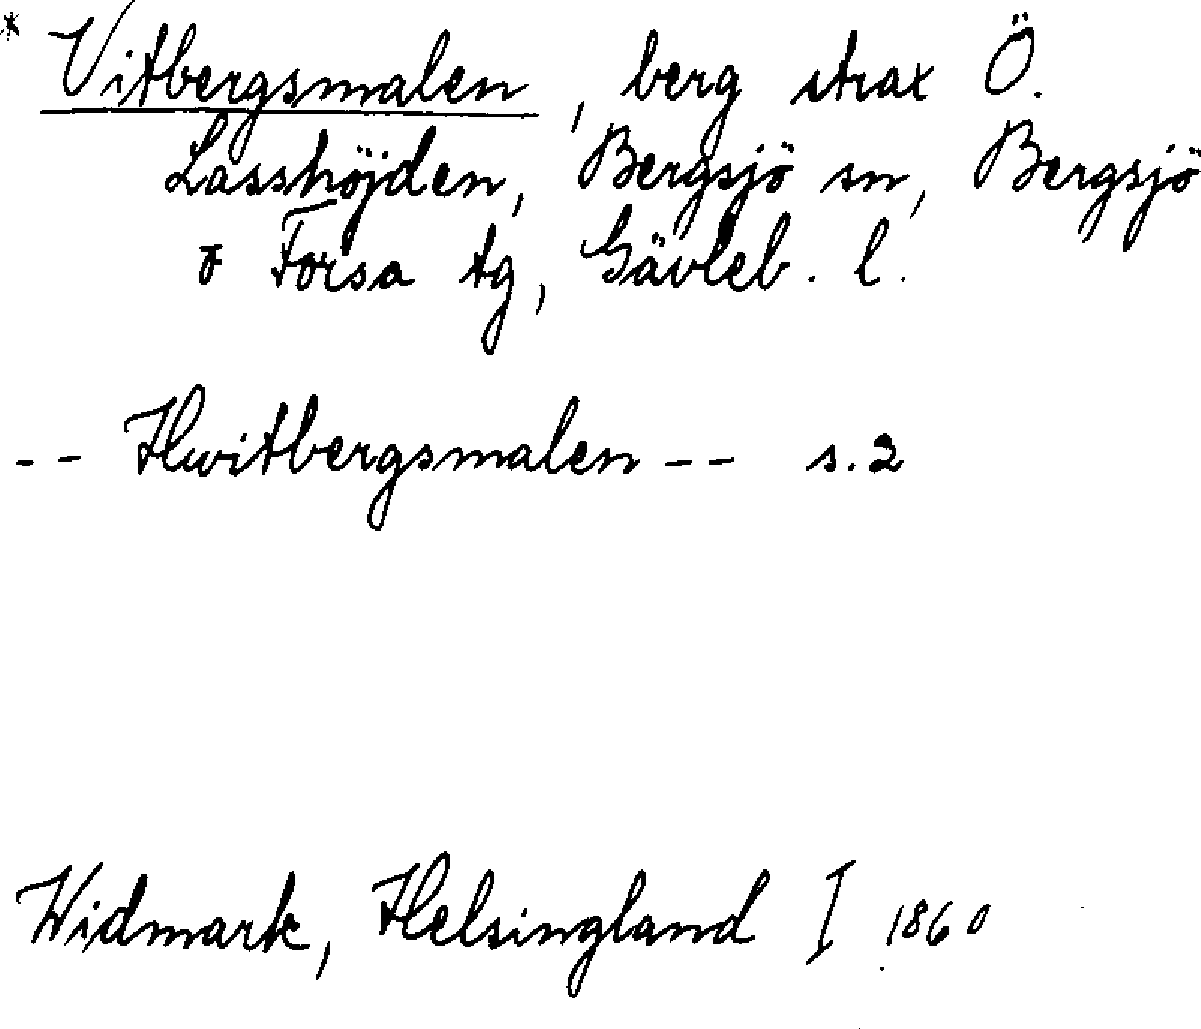 * Vitbergsmalen, berg strax Ö.
Lasshöjden, Bergsjö sn, Bergsjö
o Forsa tg, Gävleb. l.
-- Hwitbergsmalen -- s. 2
Widmark, Helsingland I 1860